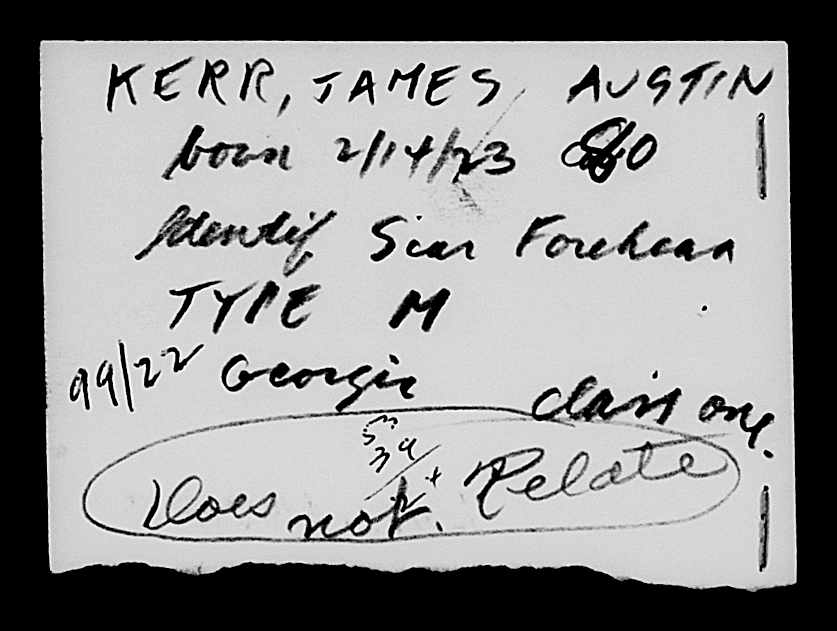 KERR, JAMES AUSTIN
born 2/14/23
Identif Scar Forehead
TYPE M
99/22 Georgia
class one.
Does not. Relate